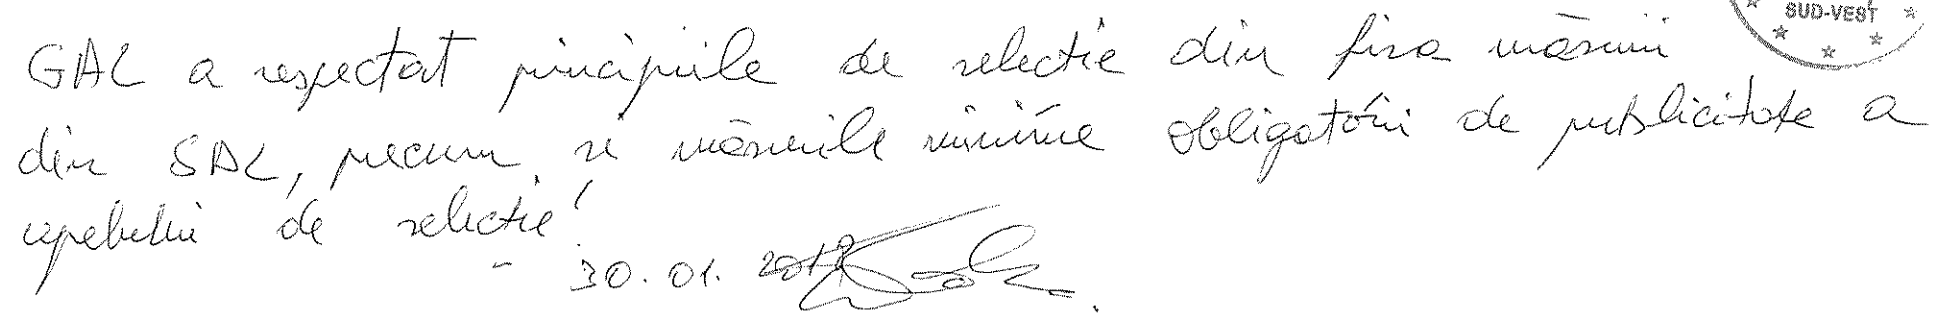 SUD-VEST
GAL a respectat principiile de selectie din fisa măsurii
din SDL, precum si măsurile minime obligatorii de publicitate a
apelului de selectie!
- 30.01.2019